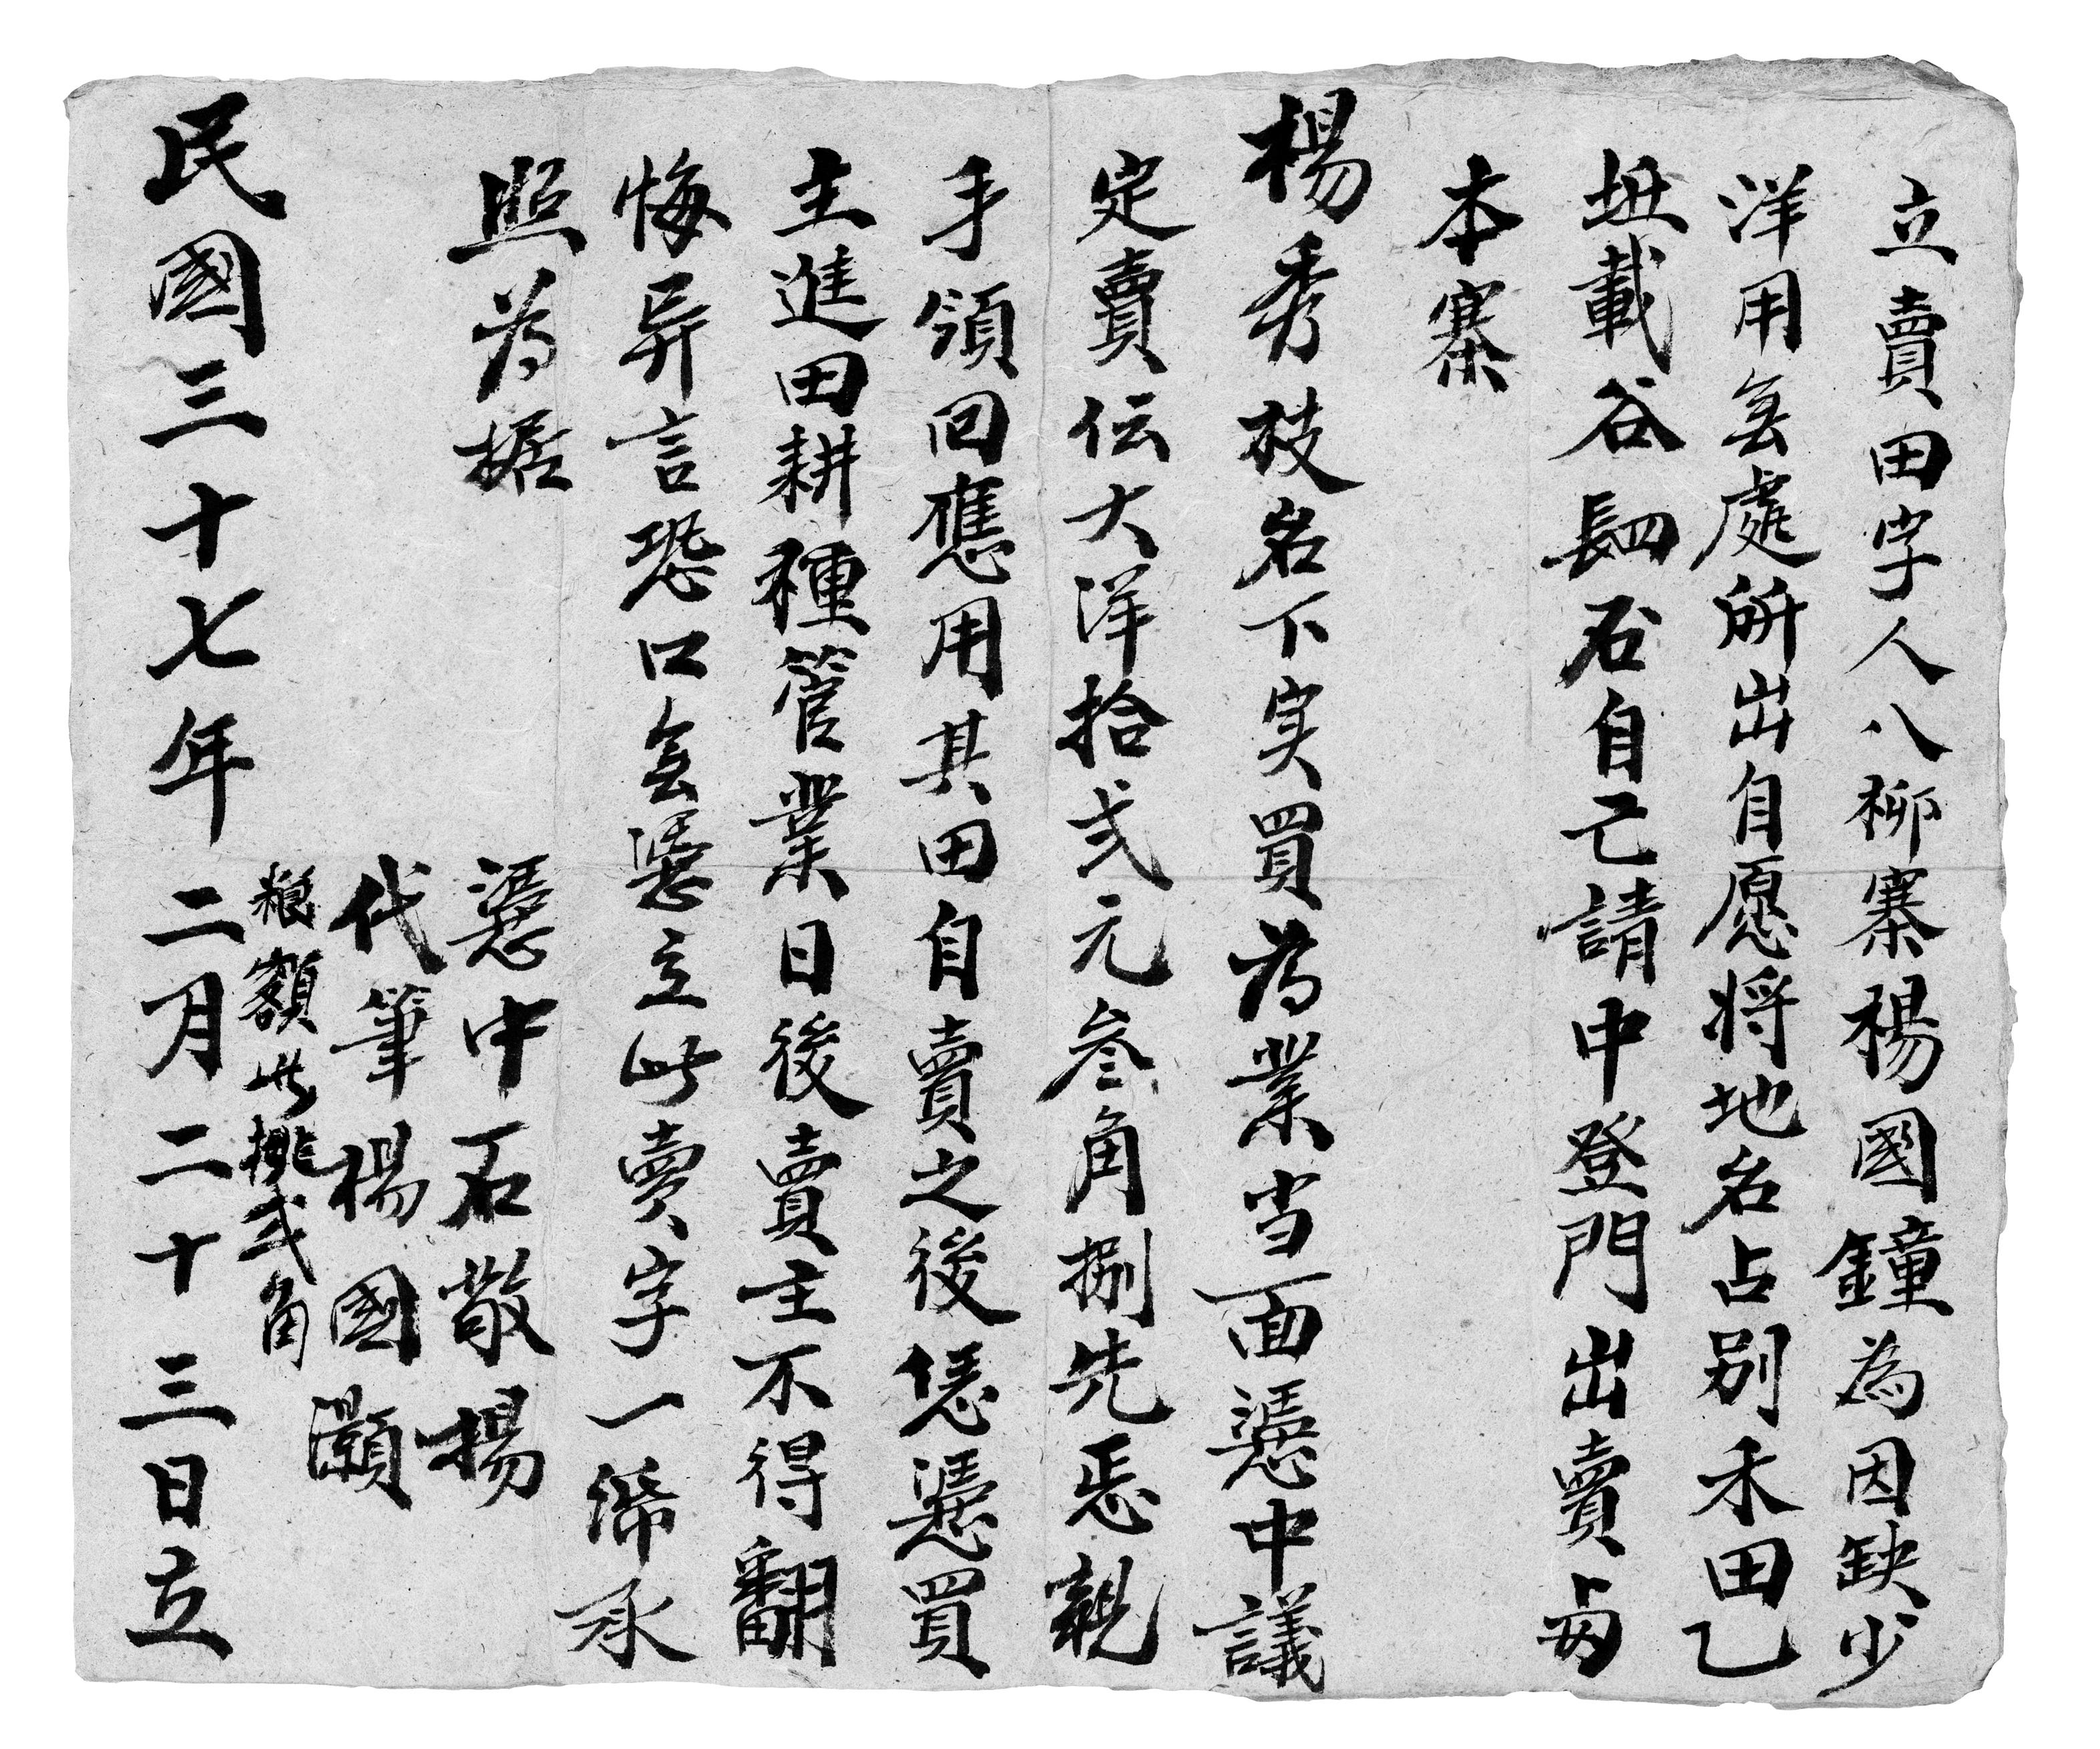 立賣田字人八柳寨楊國鐘為因缺少
洋用無處所出自愿将地名占别禾田乙
坵載谷肆石自己請中登門出賣與
本寨
楊秀枝名下実買為業当面憑中議
定賣伝大洋拾弍元叁角捌先悉親
手領回應用其田自賣之後恁憑買
主進田耕種管業日後賣主不得翻
悔异言恐口無憑立此賣字一帋承
照為据
憑中石敬揚
代筆楊國灝
粮額此挑弍角
民國三十七年二月二十三日立